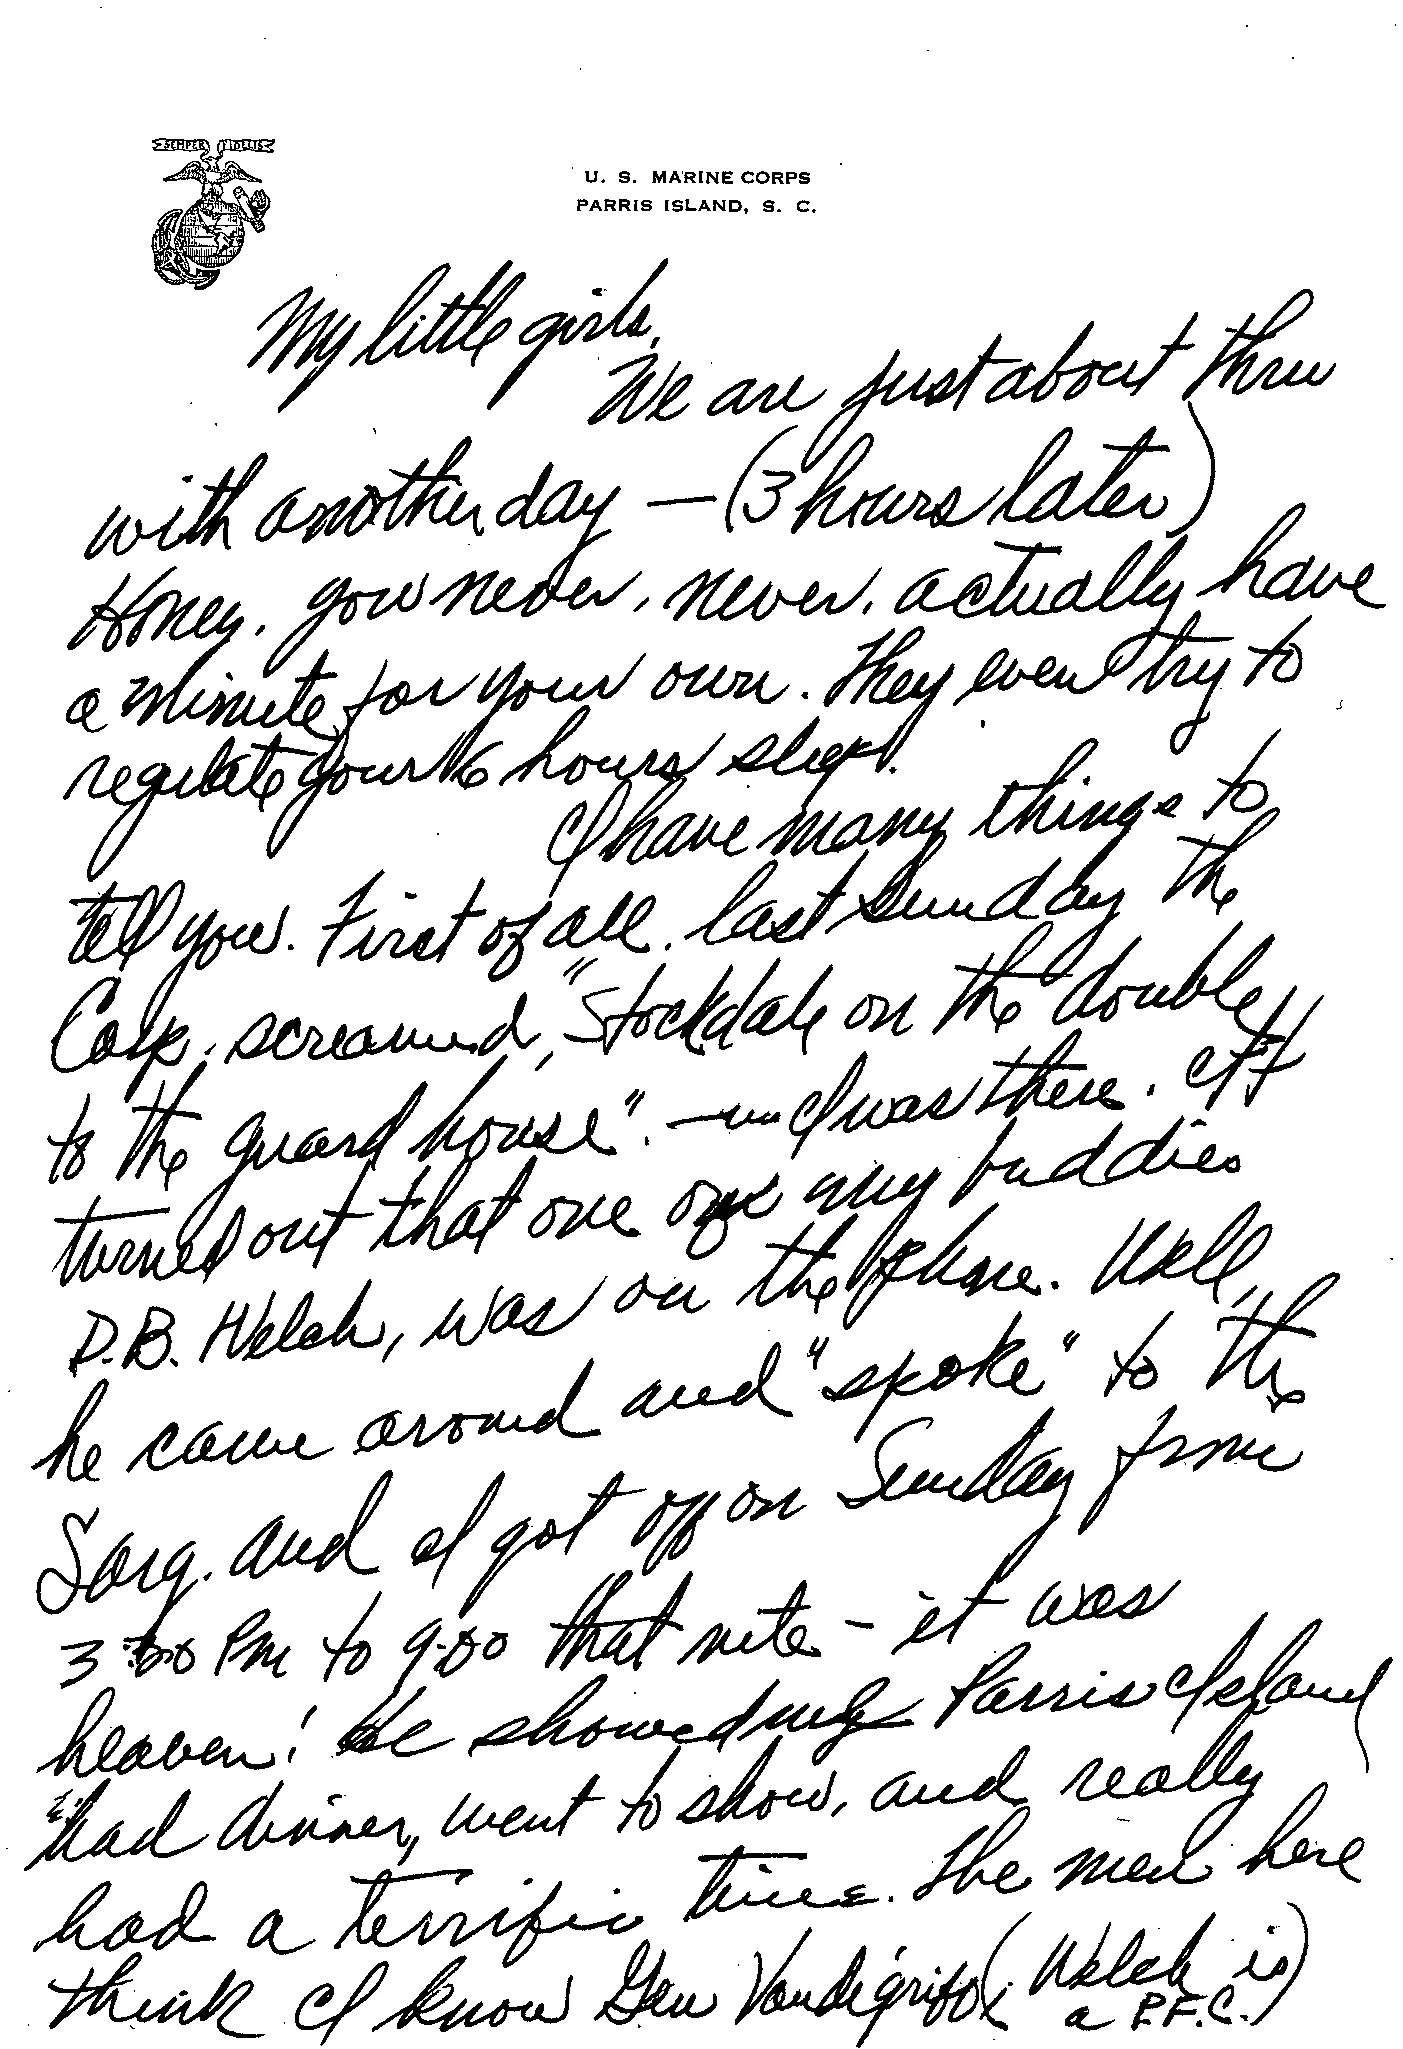 SEMPER FIDELIS
U. S. MARINE CORPS
PARRIS ISLAND, S. C.
My little girls,
We are just about thru
with another day — (3 hours later)
Honey, you never, never, actually have
a minute for your own. They even try to
regulate your 6 hours sleep.
I have many things to
tell you. First of all, last Sunday the
Corp. screamed, "Stockdale on the double
to the guard house". — and I was there. It
turned out that one of my buddies
D.B. Welch, was on the phone. Well,
he came around and "spoke" to the
Sarg. and I got off on Sunday from
3:00 PM to 9:00 that nite - it was
heaven! He showed me Parris Island
had dinner, went to show, and really
had a terrific time. The men here
think I know Gen Vandigriff (Welch is
a P.F.C.)